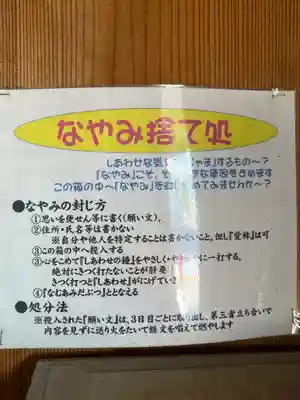 なやみ捨て処
しあわせな気 じゃま』するもの〜?
『なやみ』こそ、そ な原因をきめます
この箱の中へ『なやみ』を封じ めてみませんか〜?
●なやみの封じ方
①思いを便せん等に書く(願い文)。
②住所・氏名等は書かない
※自分や他人を特定することは書かないこと。但し『愛称』は可
③この箱の中へ投入する
③心をこめて『しあわせの鐘』をやさしく 一打する。
絶対にきつく打たないことが肝要
きつく打つと『しあわせ』がにげてい
④『なむあみだぶつ』ととなえる
●処分法
※投入された『願い文』は、3日目ごとに取り出し、第三者立ち合いで
内容を見ずに送り火をたいて経文を唱えて燃やします